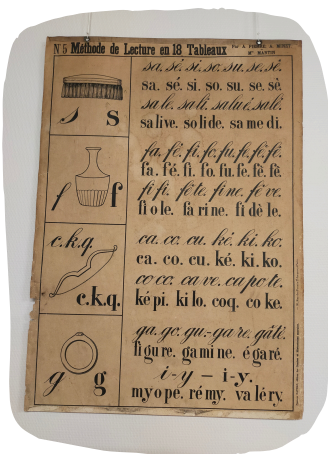 N° 5 Méthode de Lecture en 18 Tableaux
sa. sé. si. so. su. se. sè.
sa. sé. si. so. su. se. sè
sa le. sa li. sa lu é. sa lé.
sa live. so lide. sa me di.
s s
fa. fé. fi. fo. fu. fe. fè. fê.
fa. fé. fi. fo. fu. fe. fè. fê.
fi fi. fê te. fi ne. fè ve.
fi o le. fa rine. fi dè le.
f f
ca. co. cu. ké. ki. ko.
ca. co. cu. ké. ki. ko.
co co. ca ve. ca po te.
ké pi. ki lo. coq. co ke.
c. k. q.
c. k. q.
ga. go. gu - ga re. gâté.
fi gu re. ga mi ne. é ga ré.
i - y — i - y.
my o pe. ré my. va lé ry.
g g